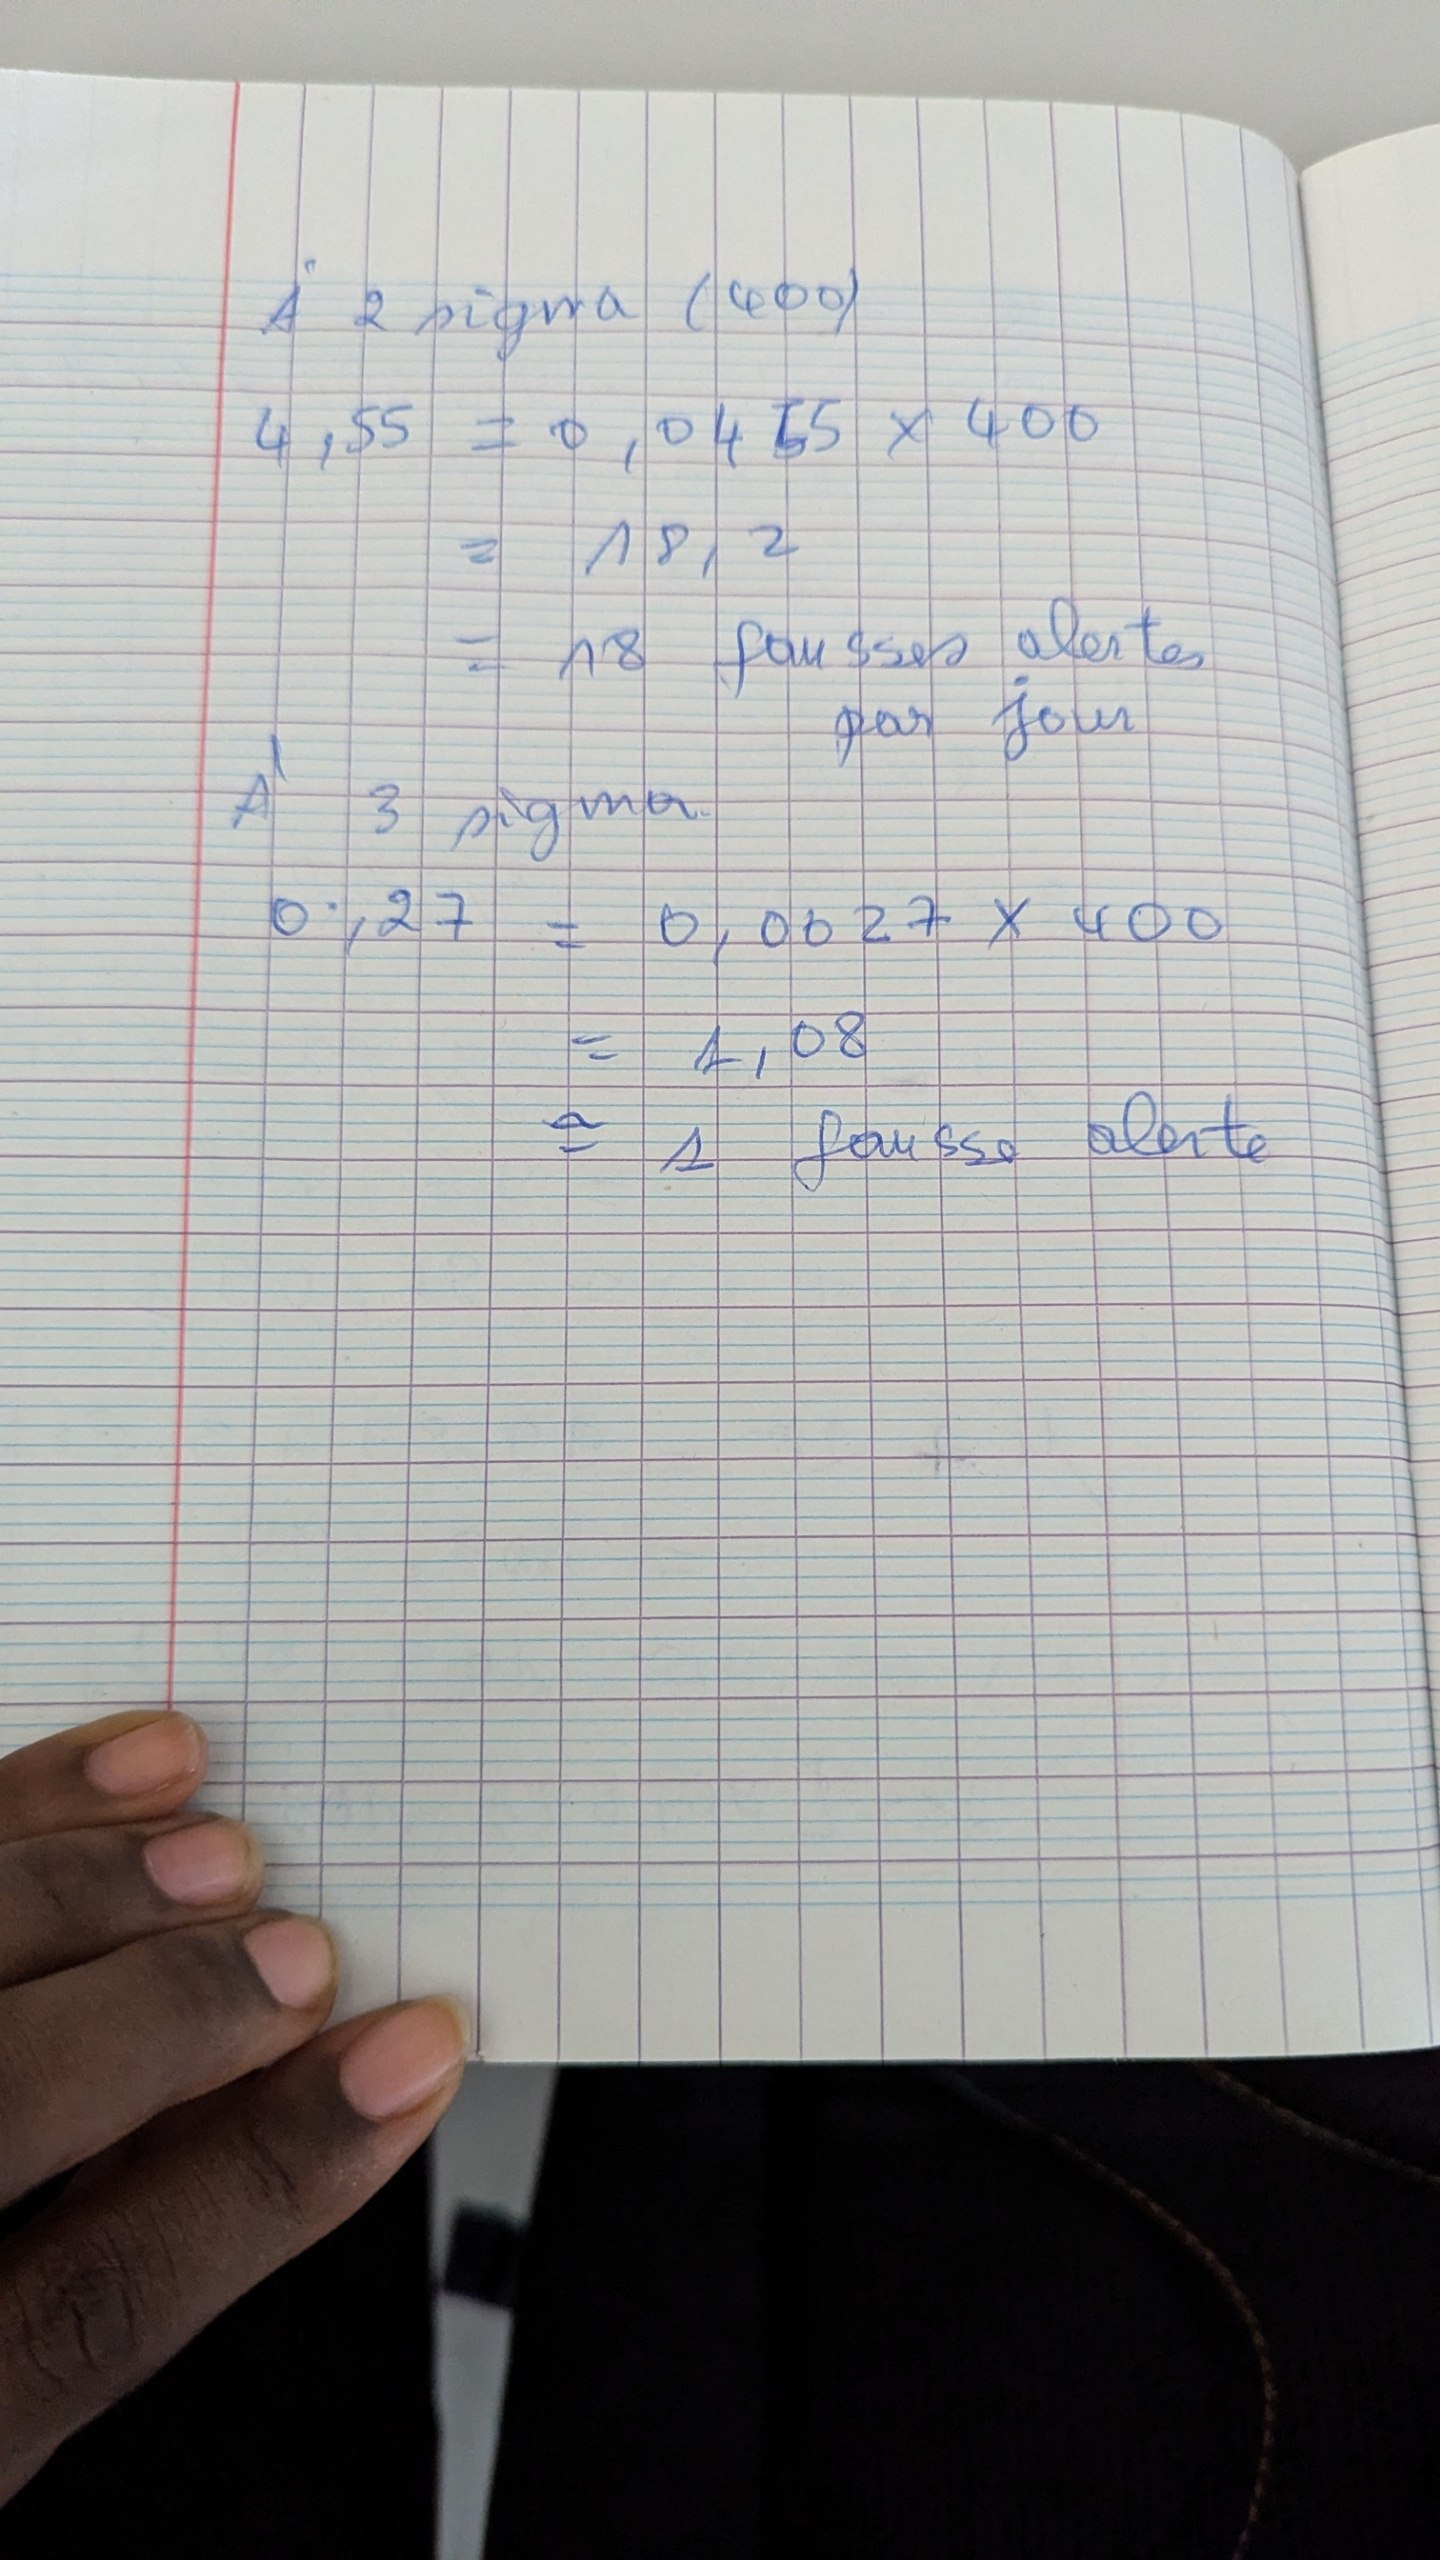 À 2 sigma (400)
4,55 = 0,0455 x 400
= 18,2
= 18 fausses alertes
par jour
À 3 sigma
0,27 = 0,0027 x 400
= 1,08
≃ 1 fausse alerte